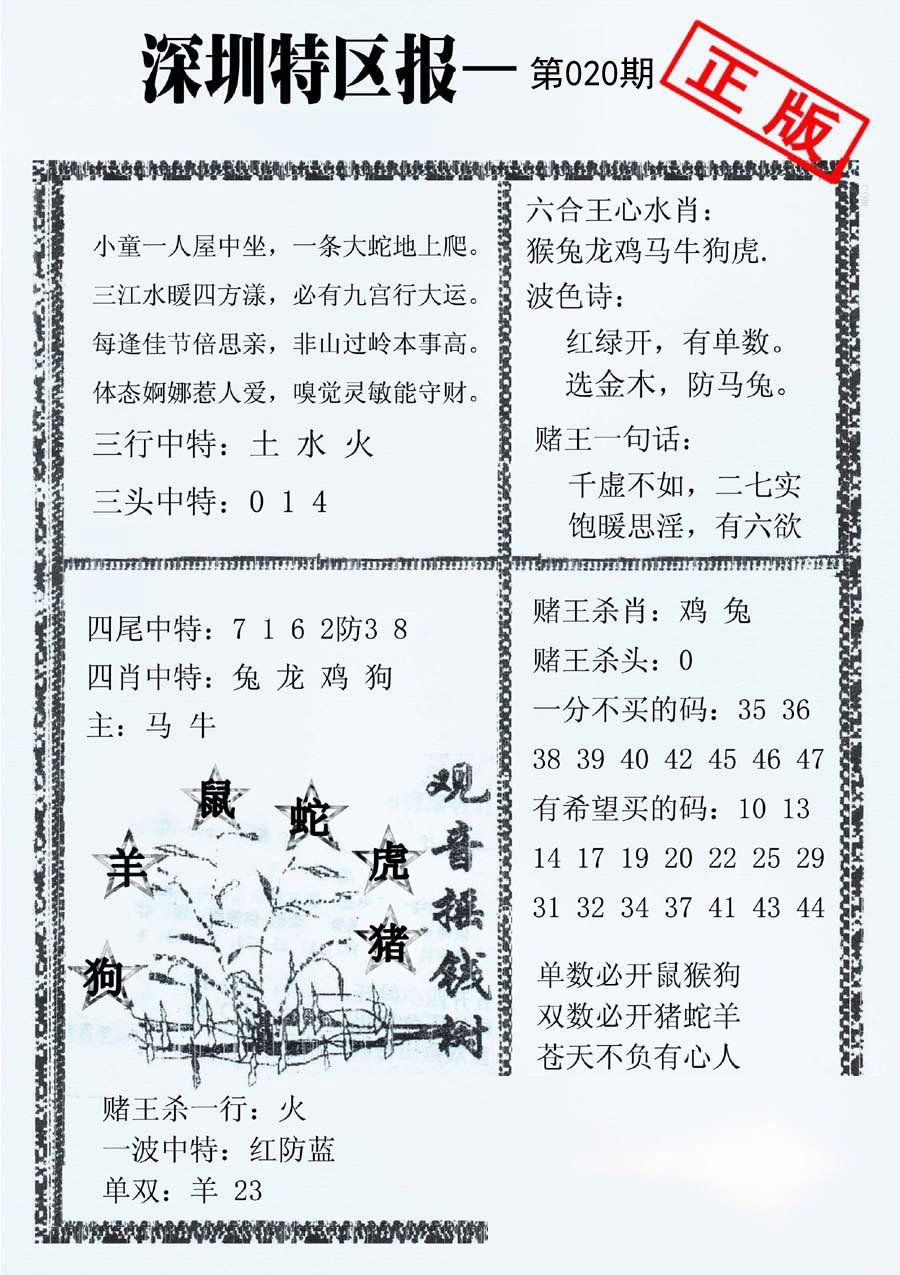 深圳特区报一 第020期
正版
小童一人屋中坐，一条大蛇地上爬。
三江水暖四方漾，必有九宫行大运。
每逢佳节倍思亲，非山过岭本事高。
体态婀娜惹人爱，嗅觉灵敏能守财。
三行中特：土 水 火
三头中特：0 1 4
六合王心水肖：
猴兔龙鸡马牛狗虎.
波色诗：
红绿开，有单数。
选金木，防马兔。
赌王一句话：
千虚不如，二七实
饱暖思淫，有六欲
四尾中特：7 1 6 2防3 8
四肖中特：兔 龙 鸡 狗
主：马 牛
鼠
蛇
羊
虎
猪
狗
观音摇钱树
赌王杀一行：火
一波中特：红防蓝
单双：羊 23
赌王杀肖：鸡 兔
赌王杀头：0
一分不买的码：35 36
38 39 40 42 45 46 47
有希望买的码：10 13
14 17 19 20 22 25 29
31 32 34 37 41 43 44
单数必开鼠猴狗
双数必开猪蛇羊
苍天不负有心人